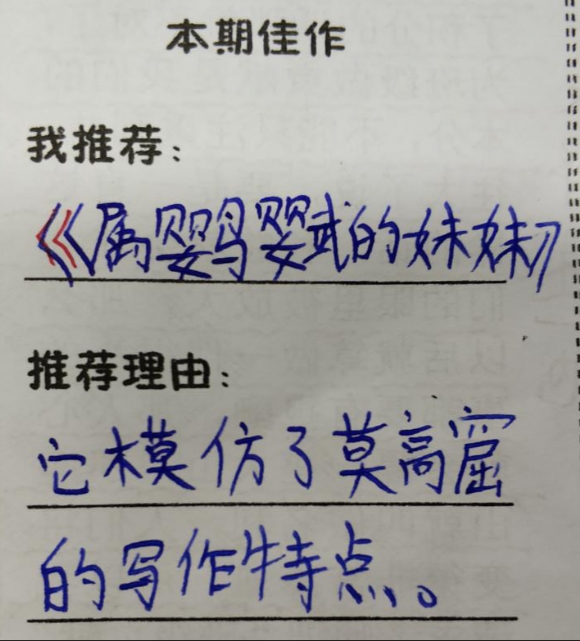 本期佳作
我推荐：
《属鹦鹉的妹妹》
推荐理由：
它模仿了莫高窟
的写作特点。